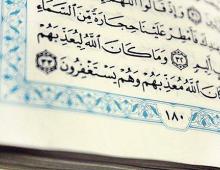 وَإِذْ قَالُوا۟ ٱللَّهُمَّ
فَأَمْطِرْ عَلَيْنَا حِجَارَةً مِّنَ ٱلسَّمَآءِ
٣٢ وَمَا كَانَ ٱللَّهُ لِيُعَذِّبَهُمْ
كَانَ ٱللَّهُ مُعَذِّبَهُمْ وَهُمْ يَسْتَغْفِرُونَ ٣٣
١٨٠